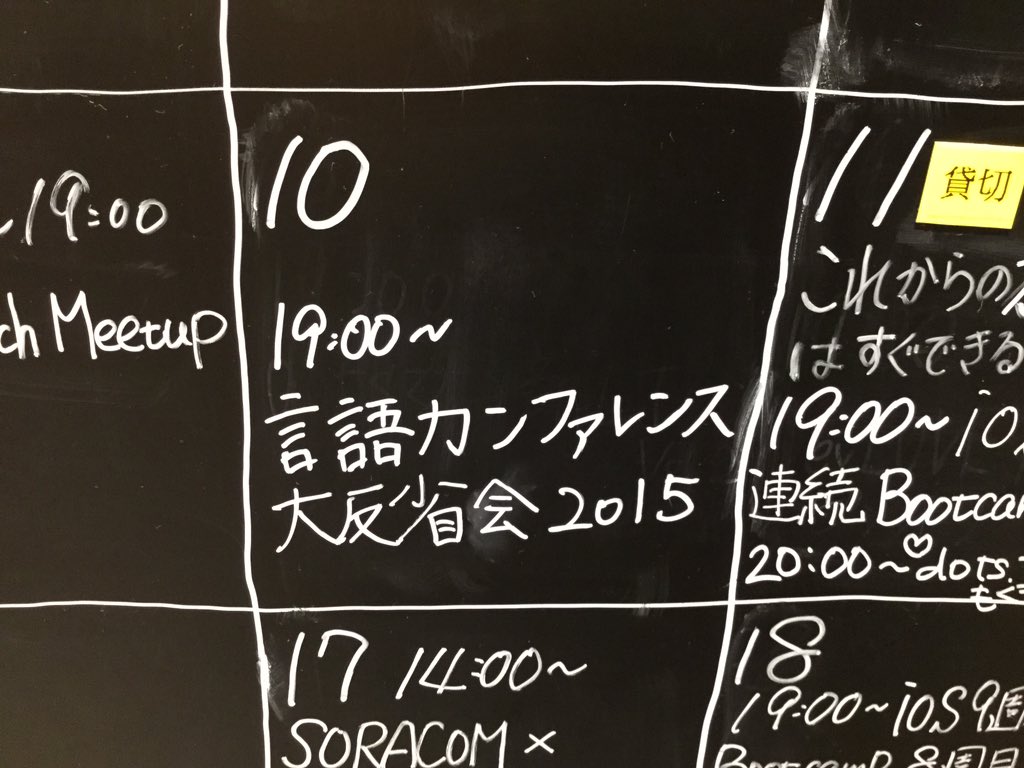 19:00
Meetup
10
19:00~
言語カンファレンス
大反省会 2015
11
貸切
これからの
はすぐできる
19:00~
連続
20:00~♡dots.
17 14:00~
SORACOM ×
18
19:00~ iOS 9週